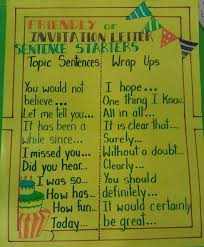 FRIENDLY or
INVITATION LETTER
SENTENCE STARTERS
Topic Sentences
You would not
believe...
Let me tell you...
It has been a
while since...
I missed you...
Did you hear...
I was so...
How has...
How fun...
Today...
Wrap Ups
I hope...
One Thing I Know...
All in all...
It is clear that...
Surely...
Without a doubt...
Clearly...
You should
definitely...
It would certainly
be great...